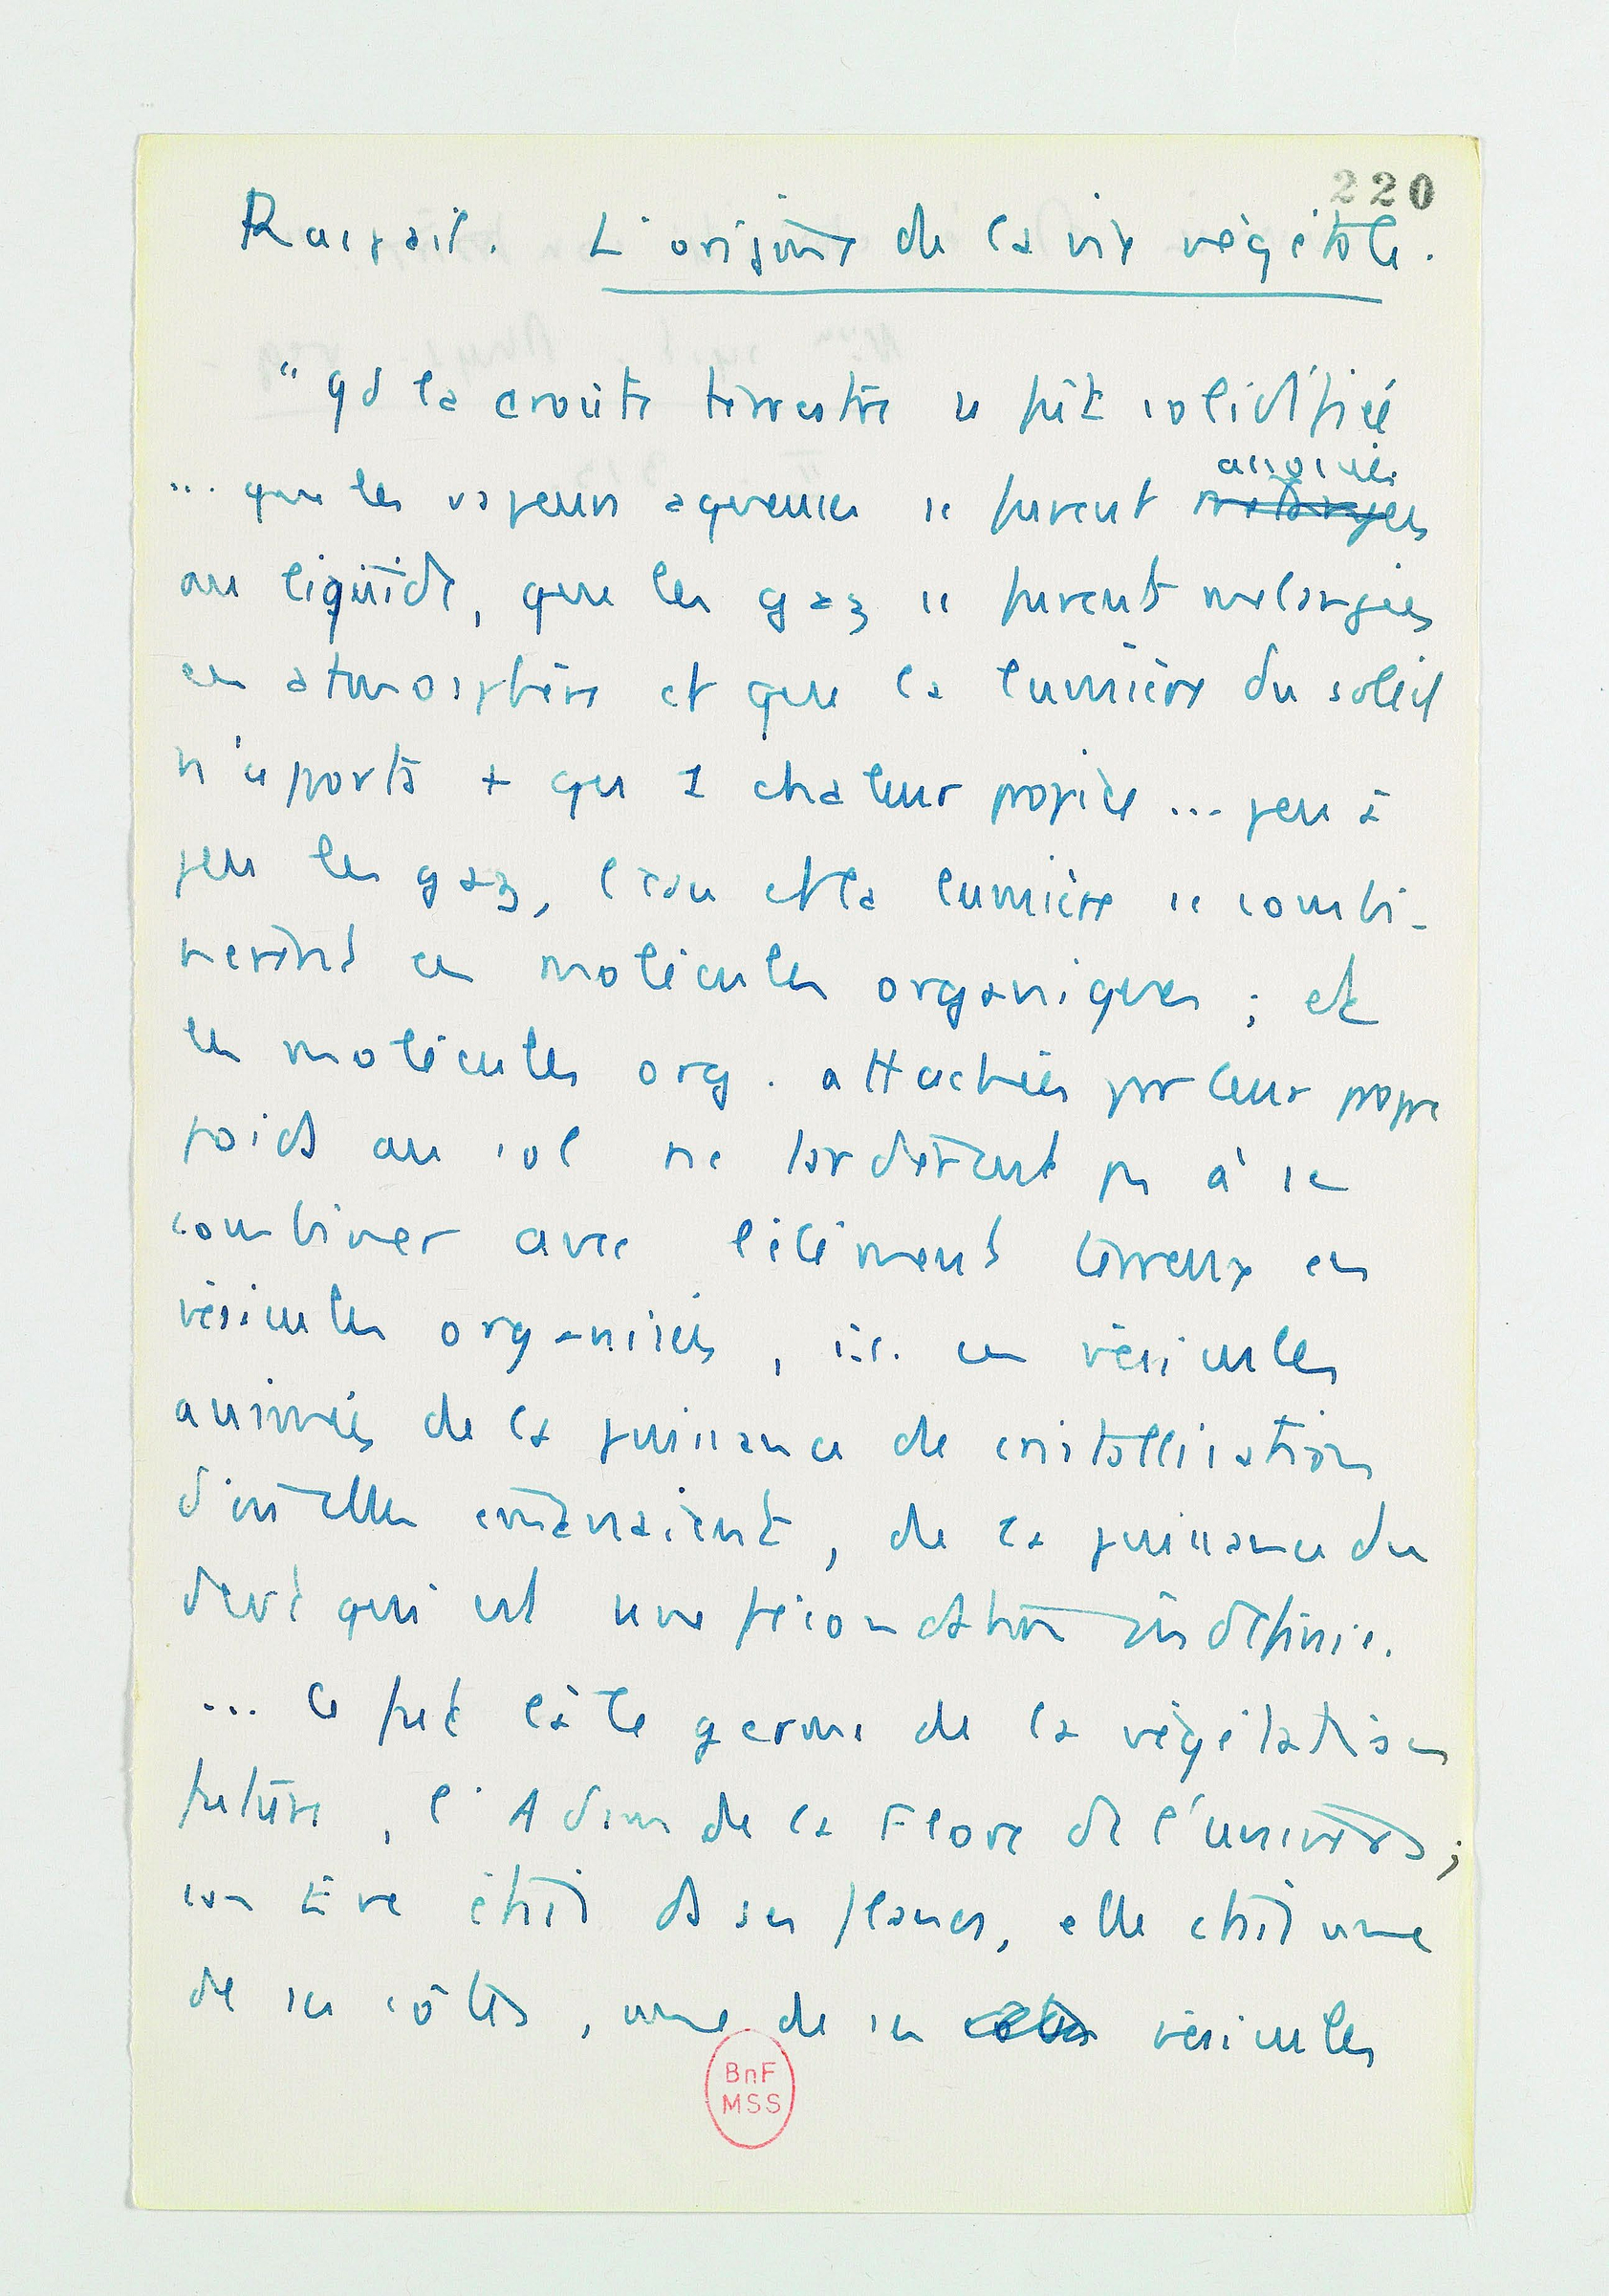 220
Raspail. L'origine de la vie végétale.
"Qd la croûte terrestre se fût solidifiée
associées
... que les vapeurs aqueuses se furent mélangées
au liquide, que les gaz se furent mélangés
en atmosphère et que la lumière du soleil
n'apporta + qu 1 chaleur propice ... peu à
peu les gaz, l'eau et la lumière se combi-
nèrent en molécules organiques ; et
les molécules org. attachées par leur propre
poids au sol ne tardèrent pas à se
combiner avec l'élément terreux en
vésicules organisées, i.e. en vésicules
animées de la puissance de cristallisation
d'où elles émanaient, de la puissance du
devt qui est une fécondation indéfinie.
... Ce fut là le germe de la végétation
future, l'Adam de la Flore de l'univers ;
son Eve était ds ses flancs, elle était une
de ses côtes, une de ses côtes vésicules
BnF
MSS